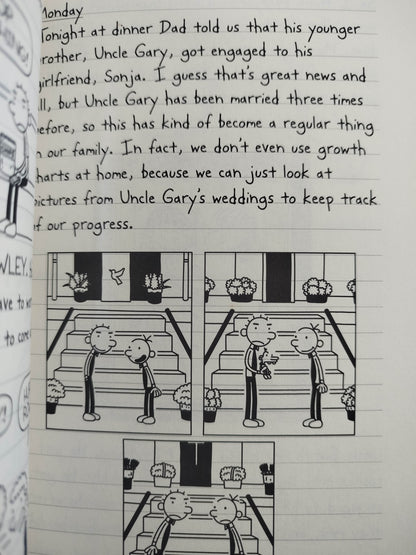 Monday
Tonight at dinner Dad told us that his younger
brother, Uncle Gary, got engaged to his
girlfriend, Sonja. I guess that's great news and
all, but Uncle Gary has been married three times
before, so this has kind of become a regular thing
in our family. In fact, we don't even use growth
charts at home, because we can just look at
pictures from Uncle Gary's weddings to keep track
of our progress.